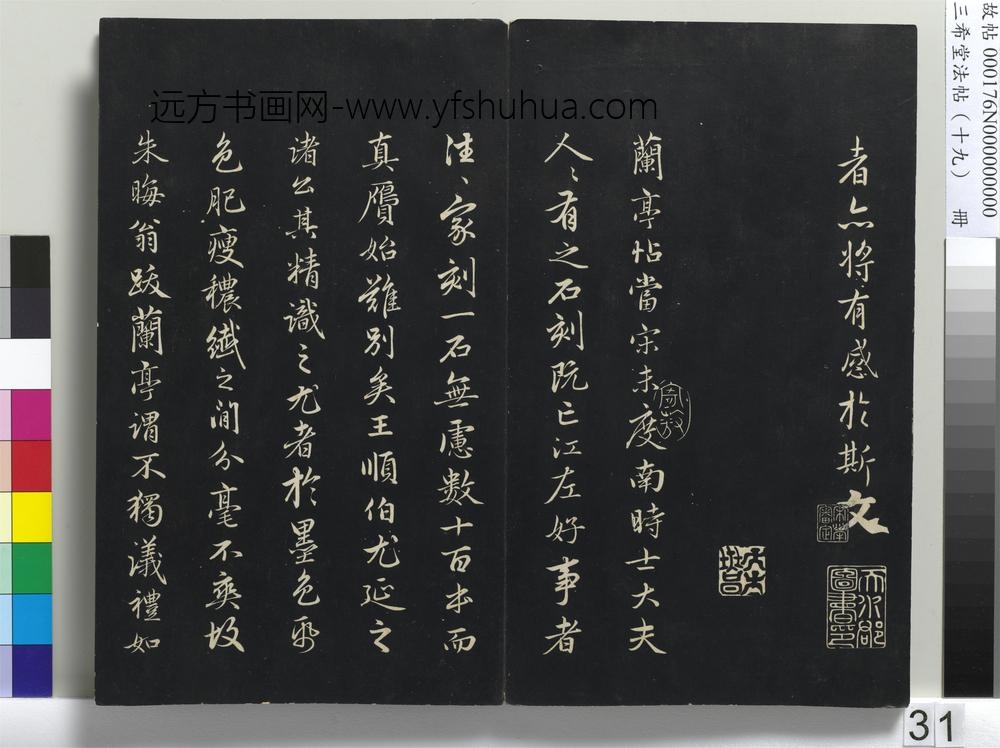 远方书画网-www.yfshuhua.com
故帖 000176N000000000
三希堂法帖（十九） 冊
者亦將有感於斯文
蘭亭帖當宋未度南時士大夫
人〻有之石刻既亡江左好事者
往〻家刻一石無慮數十百本而
真贗始難別矣王順伯尤延之
諸公其精識之尤者於墨色紙
色肥瘦穠纖之間分毫不爽故
朱晦翁跋蘭亭謂不獨議禮如
天水郡圖書印
31